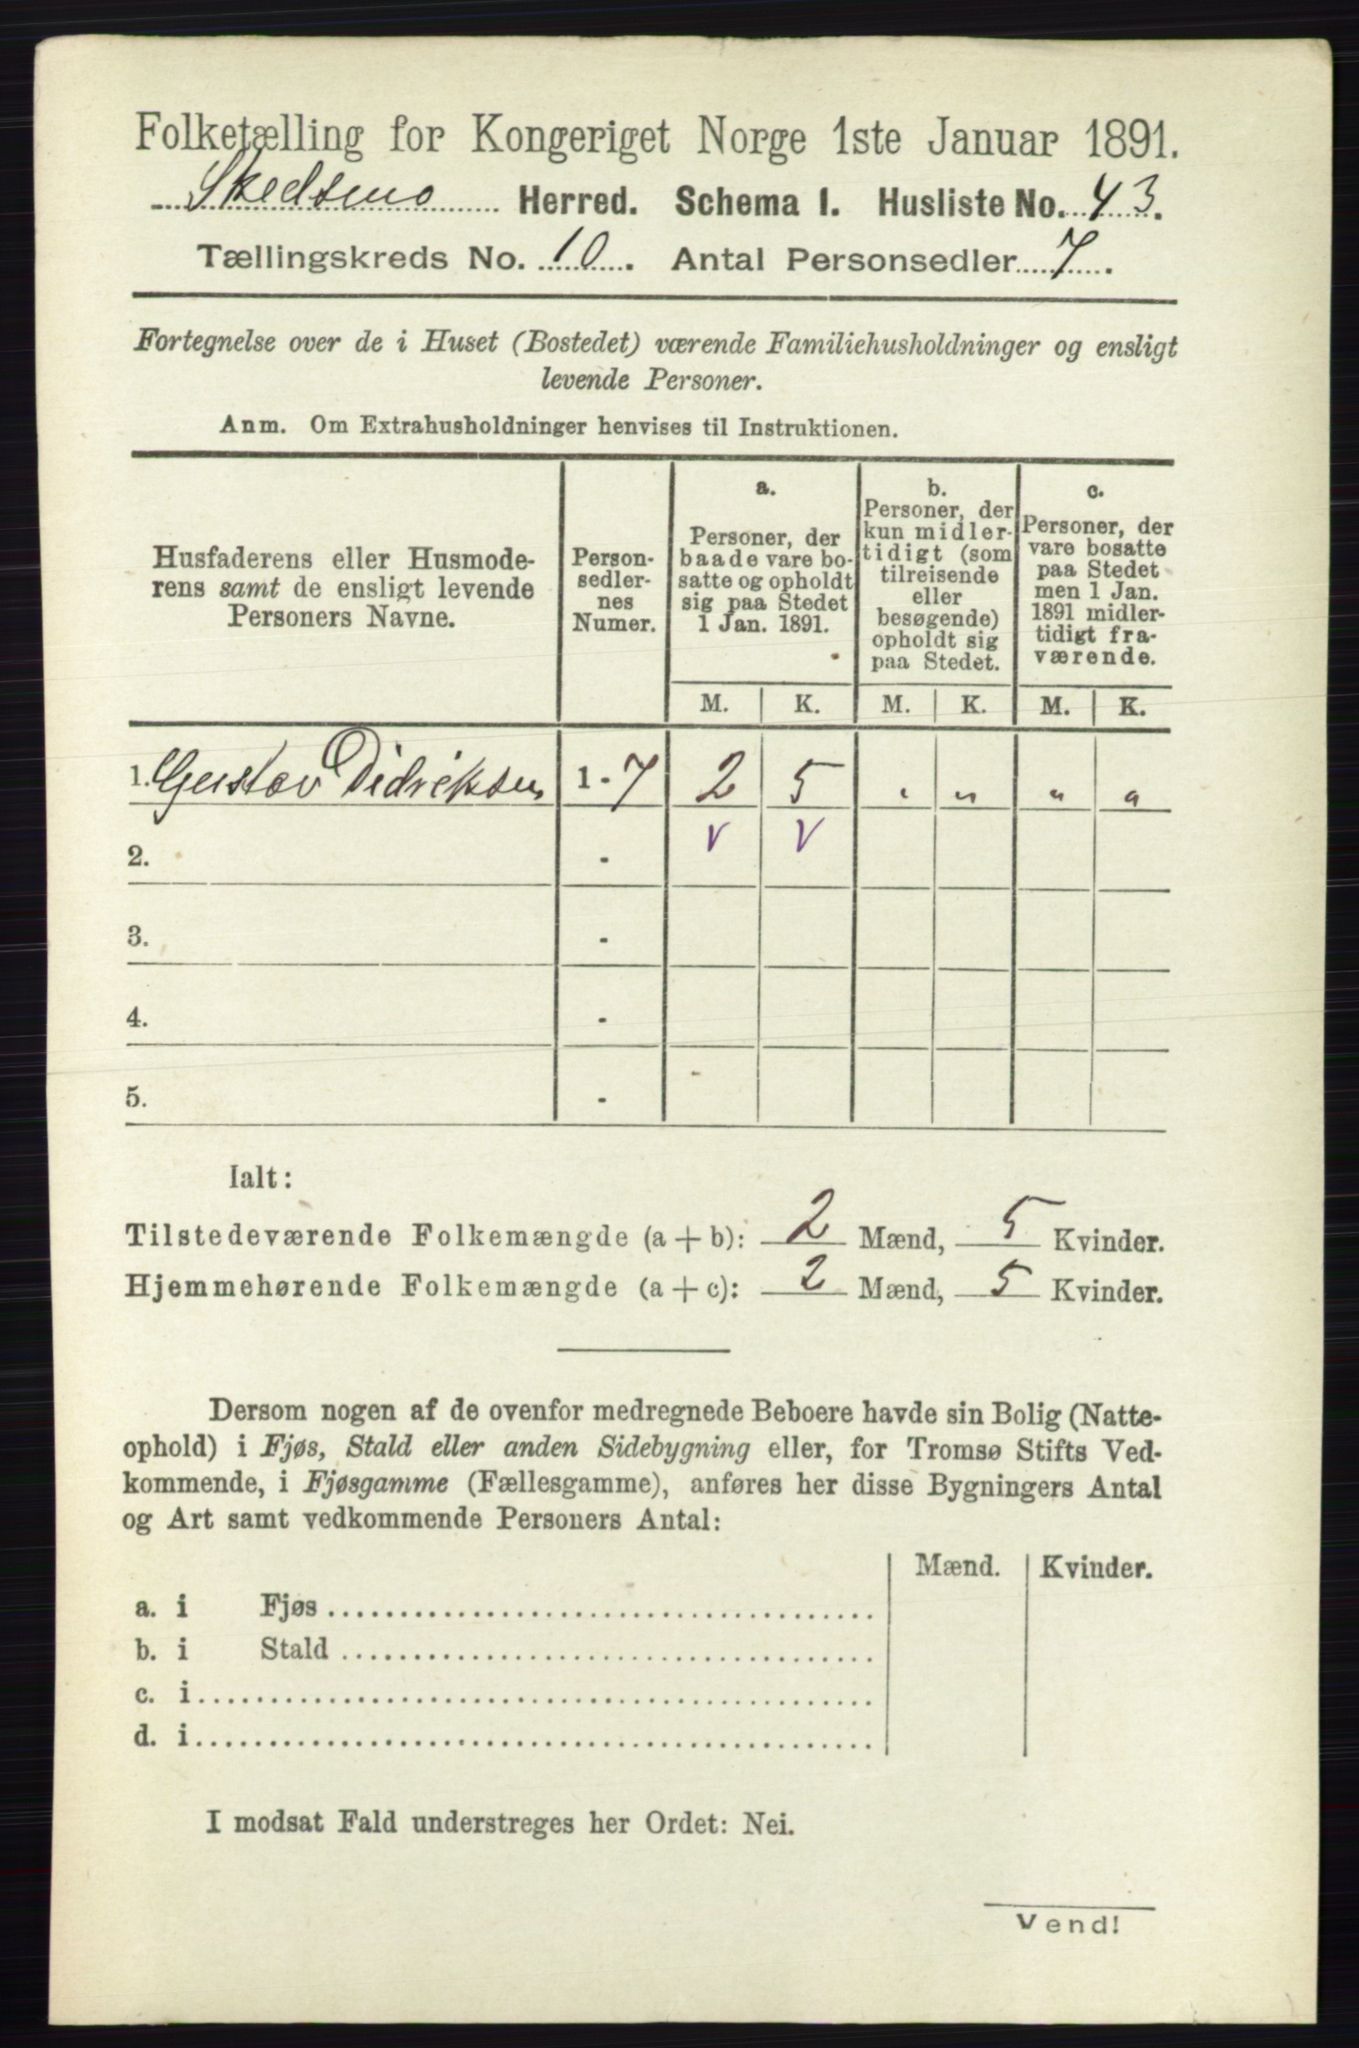 Folketælling for Kongeriget Norge 1ste Januar 1891.
Skedsmo Herred. Schema 1. Husliste No. 43.
Tællingskreds No. 10. Antal Personsedler 7.
Fortegnelse over de i Huset (Bostedet) værende Familiehusholdninger og ensligt
levende Personer.
Anm. Om Extrahusholdninger henvises til Instruktionen.
Husfaderens eller Husmode-
rens samt de ensligt levende
Personers Navne.
Person-
sedler-
nes
Numer.
a.
Personer, der
baade vare bo-
satte og opholdt
sig paa Stedet
1 Jan. 1891.
b.
Personer, der
kun midler-
tidigt (som
tilreisende
eller
besøgende)
opholdt sig
paa Stedet.
c.
Personer, der
vare bosatte
paa Stedet
men 1 Jan.
1891 midler-
tidigt fra-
værende.
M. K. M. K. M. K.
1. Gustav Didriksen 1 - 7 2 5 „ „ „ „
2. - v v
3. -
4. -
5. -
Ialt:
Tilstedeværende Folkemængde (a + b): 2 Mænd, 5 Kvinder.
Hjemmehørende Folkemængde (a + c): 2 Mænd, 5 Kvinder.
Dersom nogen af de ovenfor medregnede Beboere havde sin Bolig (Natte-
ophold) i Fjøs, Stald eller anden Sidebygning eller, for Tromsø Stifts Ved-
kommende, i Fjøsgamme (Fællesgamme), anføres her disse Bygningers Antal
og Art samt vedkommende Personers Antal:
Mænd. Kvinder.
a. i Fjøs
b. i Stald
c. i
d. i
I modsat Fald understreges her Ordet: Nei.
Vend!